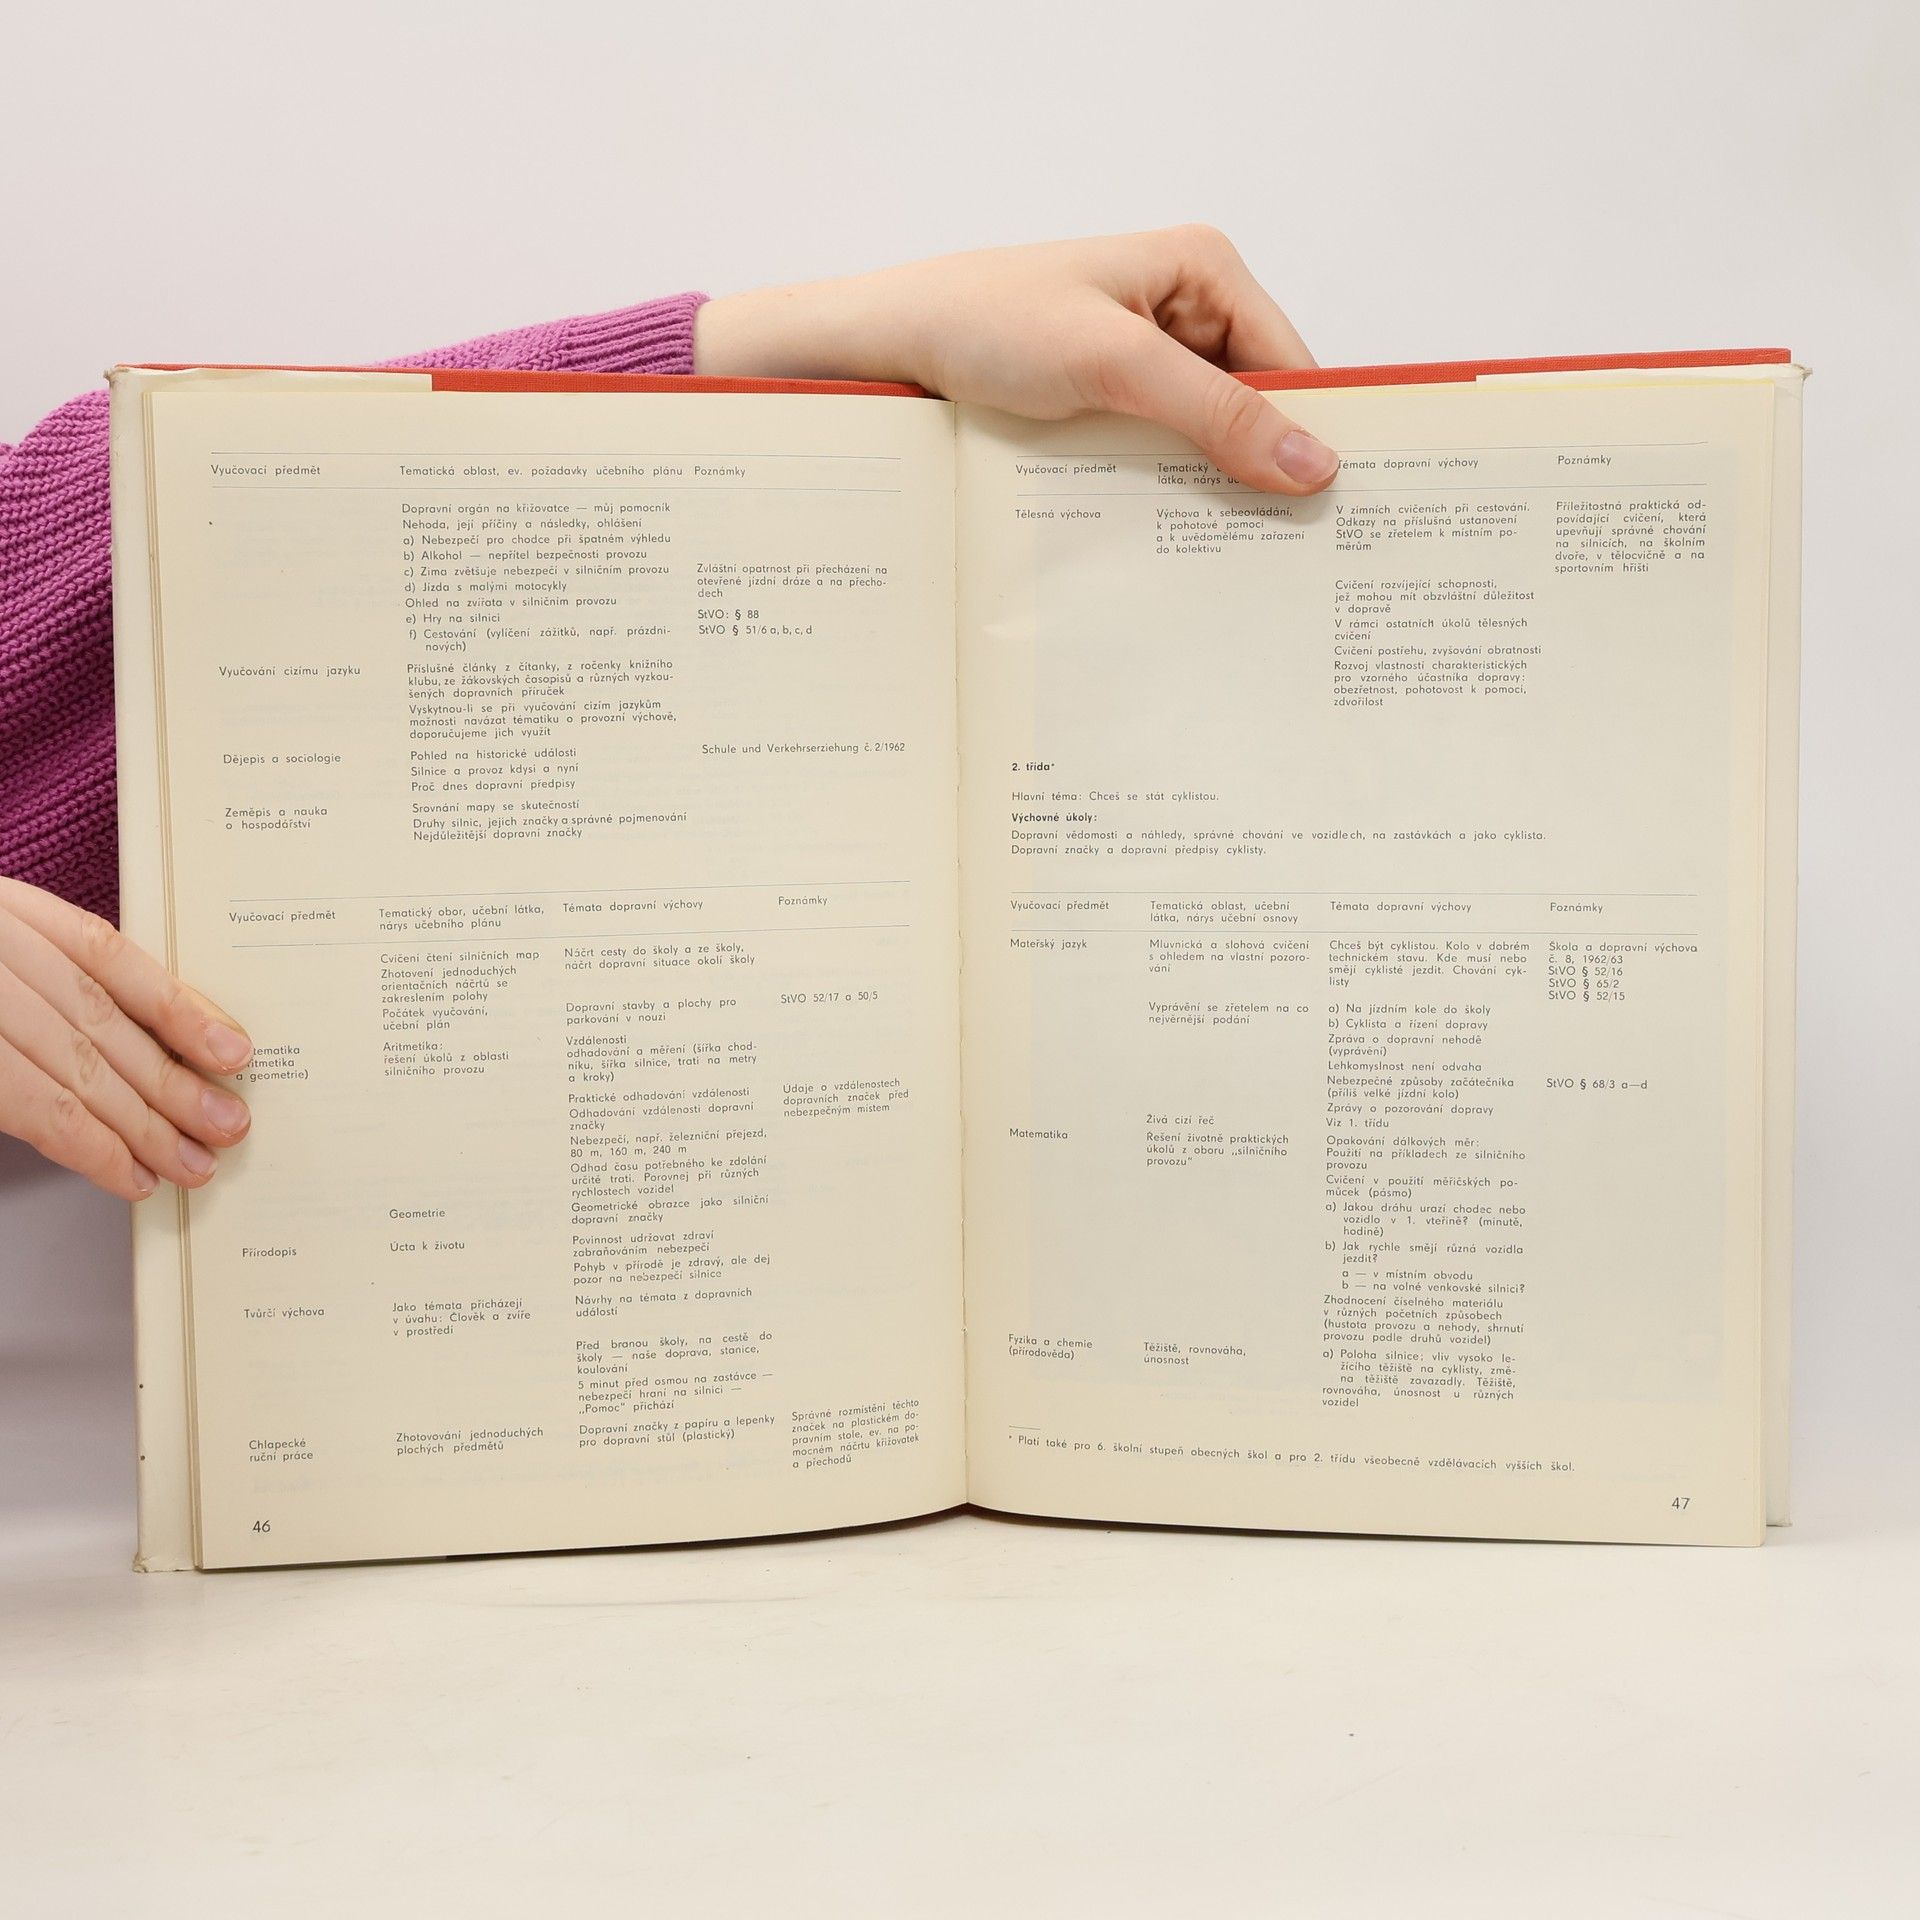 Vyučovací předmět
Tematická oblast, ev. požadavky učebního plánu
Poznámky
Dopravní orgán na křižovatce — můj pomocník
Nehoda, její příčiny a následky, ohlášení
a) Nebezpečí pro chodce při špatném výhledu
b) Alkohol — nepřítel bezpečnosti provozu
c) Zima zvětšuje nebezpečí v silničním provozu
d) Jízda s malými motocykly
Ohled na zvířata v silničním provozu
e) Hry na silnici
f) Cestování (vylíčení zážitků, např. prázdni-
nových)
Zvláštní opatrnost při přecházení na
otevřené jízdní dráze a na přecho-
dech
StVO: § 88
StVO § 51/6 a, b, c, d
Vyučování cizímu jazyku
Příslušné články z čítanky, z ročenky knižního
klubu, ze žákovských časopisů a různých vyzkou-
šených dopravních příruček
Vyskytnou-li se při vyučování cizím jazykům
možnosti navázat tématiku o provozní výchově,
doporučujeme jich využít
Dějepis a sociologie
Pohled na historické události
Silnice a provoz kdysi a nyní
Proč dnes dopravní předpisy
Schule und Verkehrserziehung č. 2/1962
Zeměpis a nauka
o hospodářství
Srovnání mapy se skutečností
Druhy silnic, jejich značky a správné pojmenování
Nejdůležitější dopravní značky
Vyučovací předmět
Tematický obor, učební látka,
nárys učebního plánu
Témata dopravní výchovy
Poznámky
Cvičení čtení silničních map
Zhotovení jednoduchých
orientačních náčrtů se
zakreslením polohy
Počátek vyučování,
učební plán
Náčrt cesty do školy a ze školy,
náčrt dopravní situace okolí školy
Dopravní stavby a plochy pro
parkování v nouzi
StVO 52/17 a 50/5
tematika
itmetika
a geometrie)
Aritmetika:
řešení úkolů z oblasti
silničního provozu
Vzdálenosti
odhadování a měření (šířka chod-
níku, šířka silnice, trati na metry
a kroky)
Praktické odhadování vzdáleností
Odhadování vzdálenosti dopravní
značky
Nebezpečí, např. železniční přejezd,
80 m, 160 m, 240 m
Odhad času potřebného ke zdolání
určité trati. Porovnej při různých
rychlostech vozidel
Údaje o vzdálenostech
dopravních značek před
nebezpečným místem
Geometrie
Geometrické obrazce jako silniční
dopravní značky
Přírodopis
Úcta k životu
Povinnost udržovat zdraví
zabraňováním nebezpečí
Pohyb v přírodě je zdravý, ale dej
pozor na nebezpečí silnice
Tvůrčí výchova
Jako témata přicházejí
v úvahu: Člověk a zvíře
v prostředí
Návrhy na témata z dopravních
událostí
Před branou školy, na cestě do
školy — naše doprava, stanice,
koulování
5 minut před osmou na zastávce —
nebezpečí hraní na silnici —
„Pomoc" přichází
Chlapecké
ruční práce
Zhotovování jednoduchých
plochých předmětů
Dopravní značky z papíru a lepenky
pro dopravní stůl (plastický)
Správné rozmístění těchto
značek na plastickém do-
pravním stole, ev. na po-
mocném náčrtu křižovatek
a přechodů
46
Vyučovací předmět
Tematický
látka, nárys
Témata dopravní výchovy
Poznámky
Tělesná výchova
Výchova k sebeovládání,
k pohotové pomoci
a k uvědomělému zařazení
do kolektivu
V zimních cvičeních při cestování.
Odkazy na příslušná ustanovení
StVO se zřetelem k místním po-
měrům
Cvičení rozvíjející schopnosti,
jež mohou mít obzvláštní důležitost
v dopravě
V rámci ostatních úkolů tělesných
cvičení
Cvičení postřehu, zvyšování obratnosti
Rozvoj vlastností charakteristických
pro vzorného účastníka dopravy:
obezřetnost, pohotovost k pomoci,
zdvořilost
Příležitostná praktická od-
povídající cvičení, která
upevňují správné chování
na silnicích, na školním
dvoře, v tělocvičně a na
sportovním hřišti
2. třída*
Hlavní téma: Chceš se stát cyklistou.
Výchovné úkoly:
Dopravní vědomosti a náhledy, správné chování ve vozidlech, na zastávkách a jako cyklista.
Dopravní značky a dopravní předpisy cyklisty.
Vyučovací předmět
Tematická oblast, učební
látka, nárys učební osnovy
Témata dopravní výchovy
Poznámky
Mateřský jazyk
Mluvnická a slohová cvičení
s ohledem na vlastní pozoro-
vání
Chceš být cyklistou. Kolo v dobrém
technickém stavu. Kde musí nebo
smějí cyklisté jezdit. Chování cyk-
listy
Škola a dopravní výchova
č. 8, 1962/63
StVO § 52/16
StVO § 65/2
StVO § 52/15
Vyprávění se zřetelem na co
nejvěrnější podání
a) Na jízdním kole do školy
b) Cyklista a řízení dopravy
Zpráva o dopravní nehodě
(vyprávění)
Lehkomyslnost není odvaha
Nebezpečné způsoby začátečníka
(příliš velké jízdní kolo)
Zprávy o pozorování dopravy
StVO § 68/3 a—d
Živá cizí řeč
Viz 1. třídu
Matematika
Řešení životně praktických
úkolů z oboru „silničního
provozu"
Opakování dálkových měr:
Použití na příkladech ze silničního
provozu
Cvičení v použití měřičských po-
můcek (pásmo)
a) Jakou dráhu urazí chodec nebo
vozidlo v 1. vteřině? (minutě,
hodině)
b) Jak rychle smějí různá vozidla
jezdit?
a — v místním obvodu
b — na volné venkovské silnici?
Zhodnocení číselného materiálu
v různých početních způsobech
(hustota provozu a nehody, shrnutí
provozu podle druhů vozidel)
Fyzika a chemie
(přírodověda)
Těžiště, rovnováha,
únosnost
a) Poloha silnice; vliv vysoko le-
žícího těžiště na cyklisty, změ-
na těžiště zavazadly. Těžiště,
rovnováha, únosnost u různých
vozidel
* Platí také pro 6. školní stupeň obecných škol a pro 2. třídu všeobecně vzdělávacích vyšších škol.
47